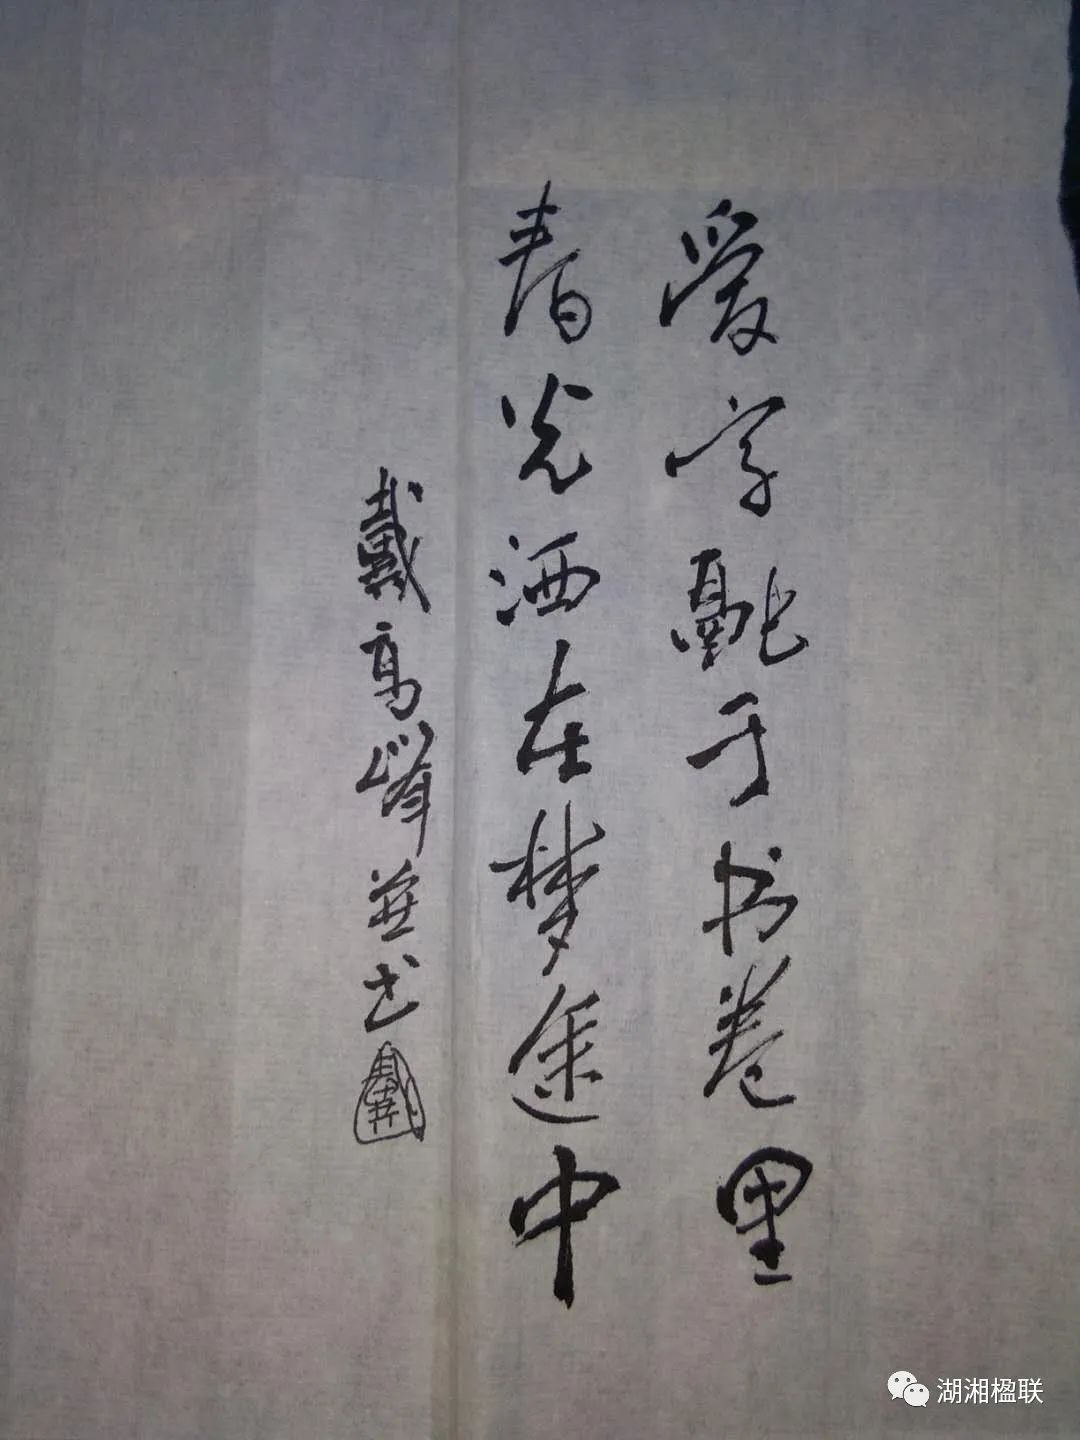 爱字融于书卷里
春光洒在梦途中
戴高峰并书
戴
湖湘楹联